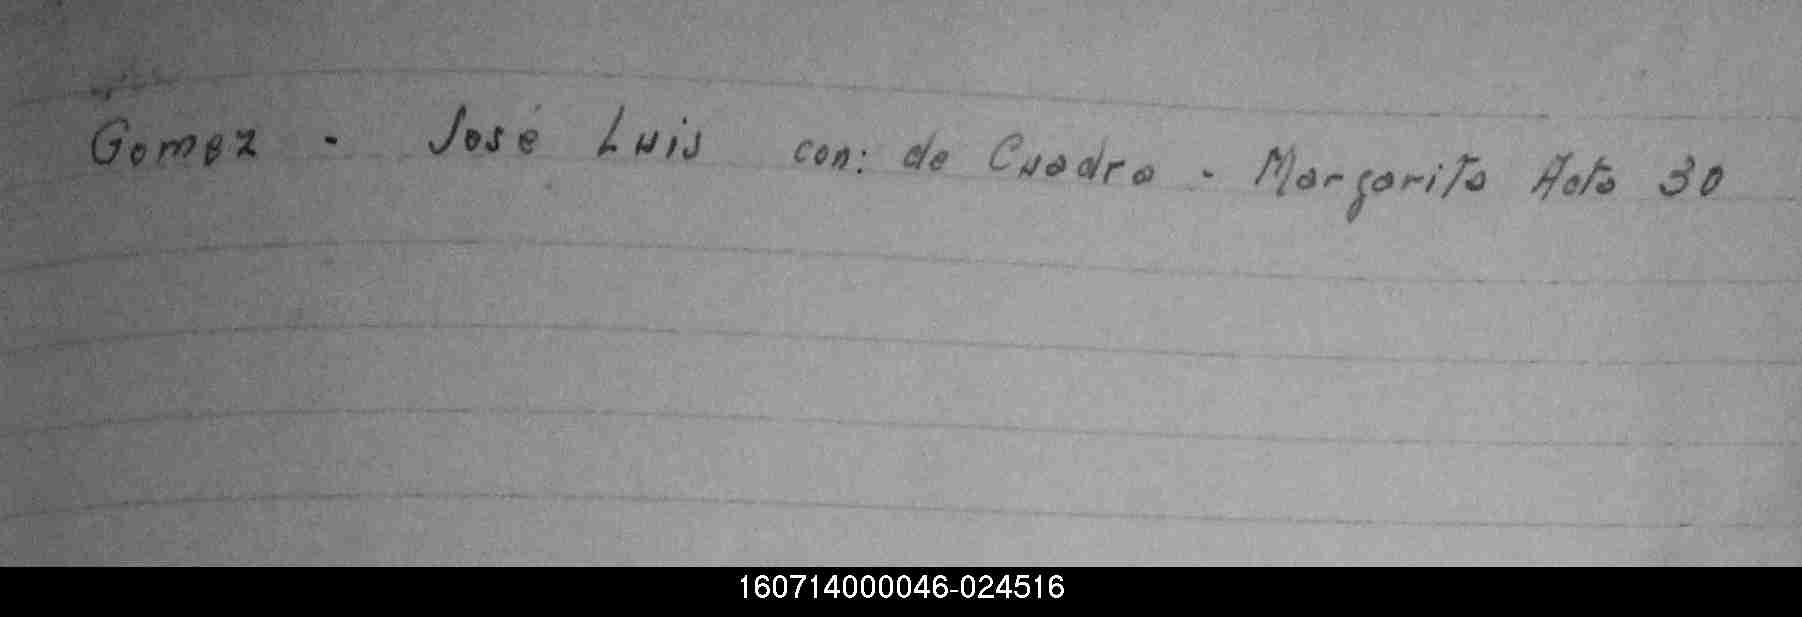 Gomez - José Luis con: de Cuadra - Margarita Acta 30
160714000046-024516